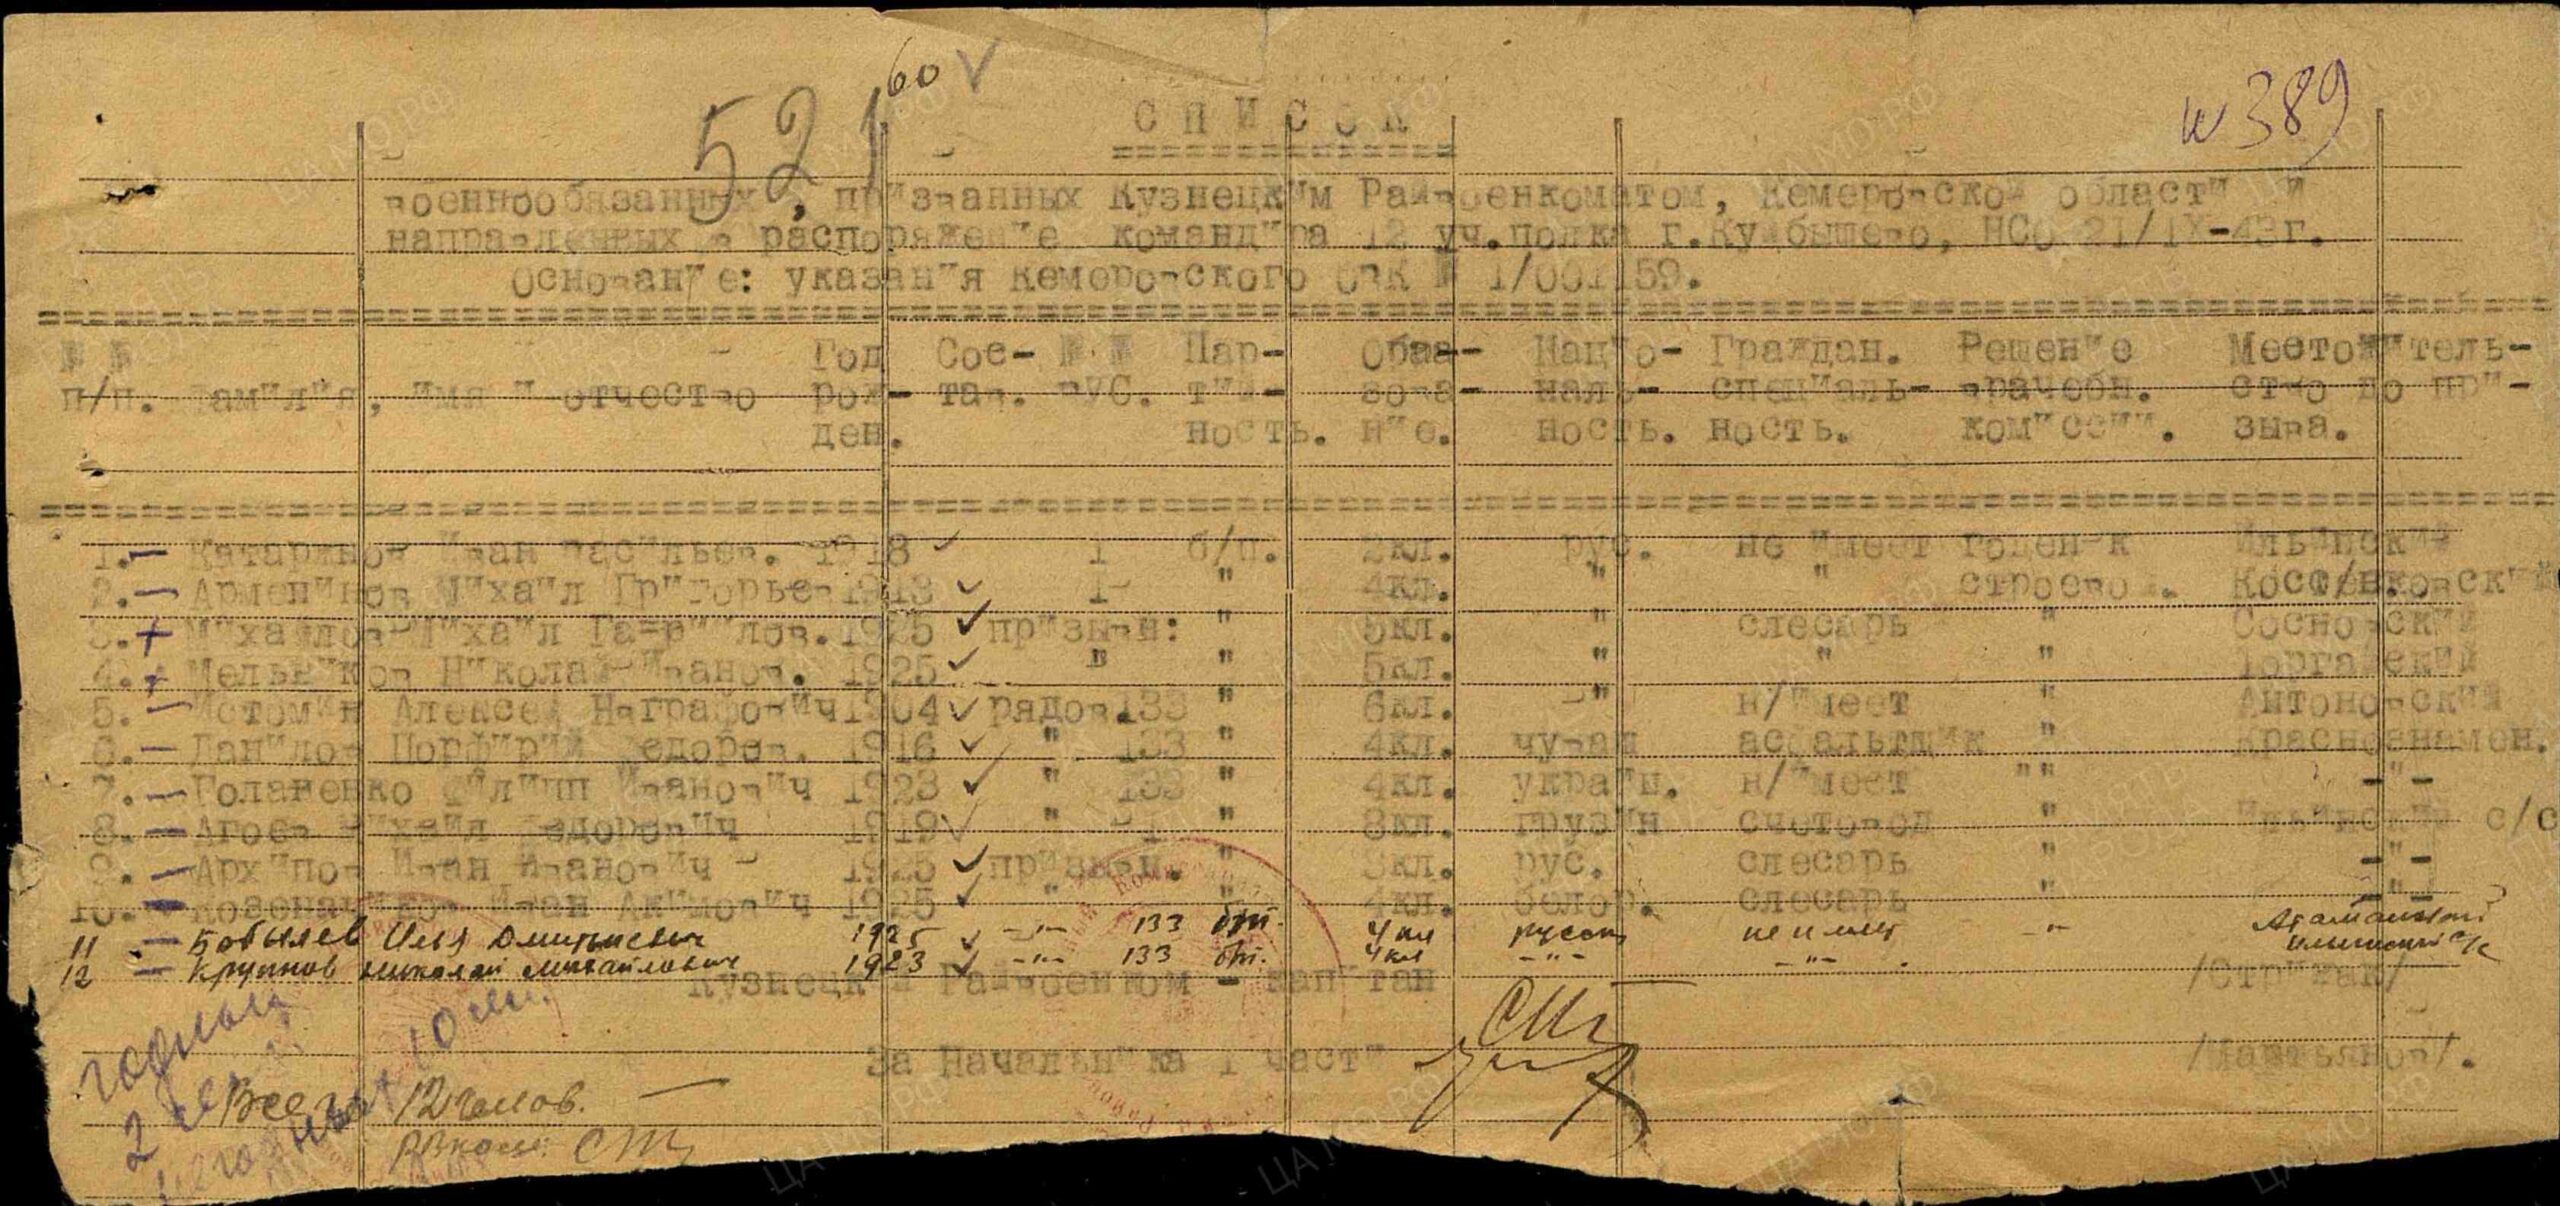 60
521
№ 389
СПИСОК
военнообязанных, призванных Кузнецким Райвоенкоматом, Кемеровской области и
направленных в распоряжение командира 12 уч.полка г.Куйбышево, НСО 21/IX-43г.
Основание: указания Кемеровского ОВК № 1/001159.
№№ Год Сос- №№ Пар- Образ- Нацио- Граждан. Решение Местожитель-
п/п. Фамилия, имя и отчество рож- тав. ВУС. тий- зова- наль- специаль- врачебн. ство по при-
ден. ность. ние. ность. ность. комиссии. зыва.
1. Иван Васильев. 1918 1 б/п. 2кл. рус. не имеет годен к Ильинский
2. Арменинов Михаил Григорьев 1913 1 " 4кл. " " строевой. Костенковский
3. + Михайлов Михаил Гаврилов. 1925 призывн: " 5кл. " слесарь " Сосновский
4. + Мельников Николай Иванов. 1925 " " 5кл. " " " Торгайский
5. Истомин Алексей 1904 рядов. 133 " 6кл. " н/имеет " Антоновский
6. Данилов Порфирий Федоров. 1916 " 133 " 4кл. чуваш асфальтщик " Краснознамен.
7. Голаненко Филипп Иванович 1923 " 133 " 4кл. украин. н/имеет "" -"-
8. Агоев Михаил Федорович 1919 " 1 " 8кл. грузин счетовод " Ильинский с/с
9. Архипов Иван Иванович 1925 призывн. " 3кл. рус. слесарь " -"-
10. Иван Акимович 1925 " " 4кл. белор. слесарь " -"-
11 Бобылев Илья Дмитриевич 1925 -"- 133 б/п. 4 кл русск не имеет -"- Атамановский
12 Крупнов Николай Михайлович 1923 -"- 133 б/п. 4 кл -"- -"- Ильинский с/с
Кузнецкий Райвоенком - капитан /Стригак/
За Начальника 1 части
годных 10 чел.
2 чел.
негодных
Всего 12 челов.
РВком.